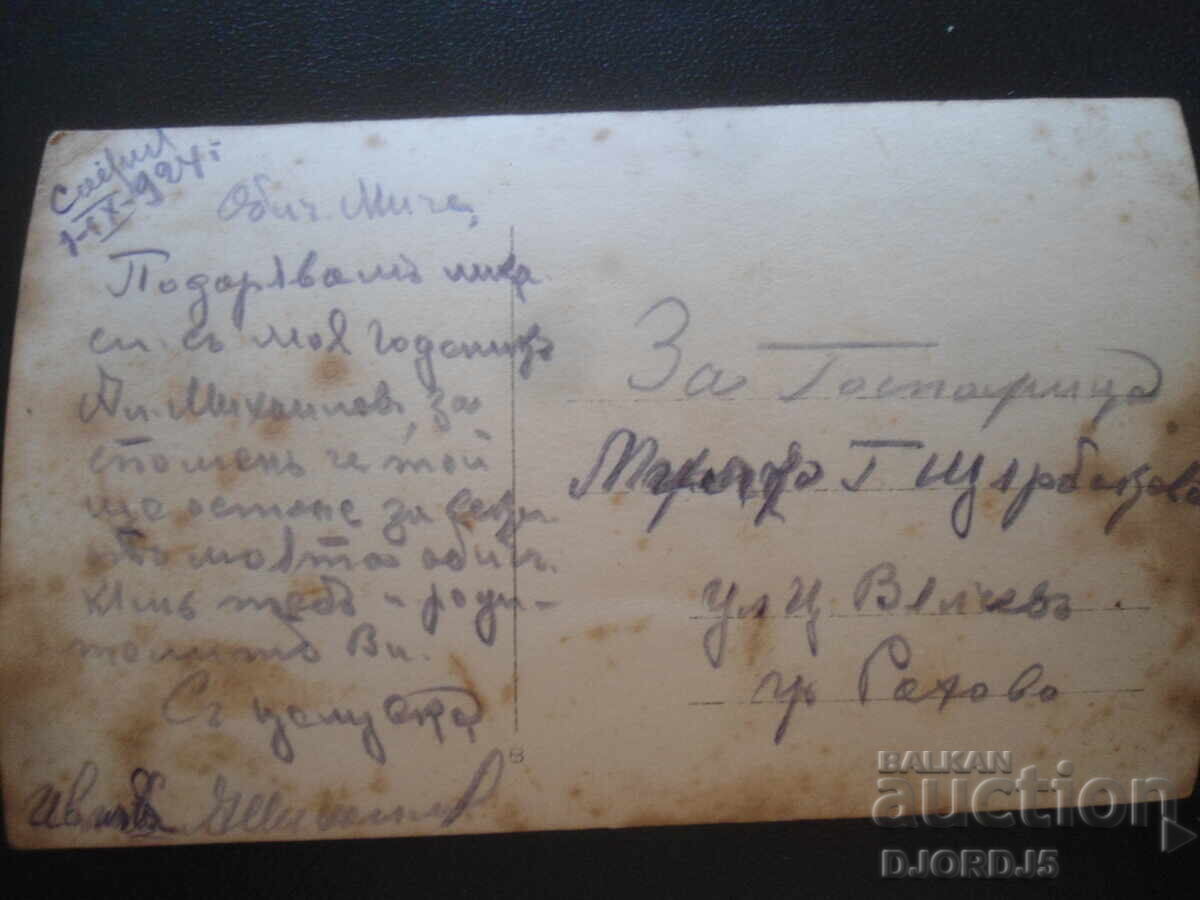 София
1-IX-924 г
Обич. Мича,
Подарявамъ
си съ моя годеникъ
Ил. Михаилов, за
споменъ че той
ще остане за
въ моята обич.
къмъ тебъ и роди-
телитѣ Ви.
Съ целувка
Михаилов
За Госпожица
Г Щърбанова
ул Ц Вѣлчевъ
гр Рахово
8
BALKAN
auction
DJORDJ5